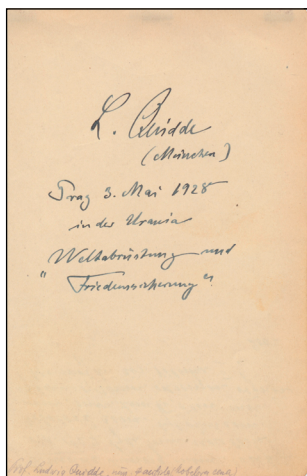 L. Quidde
(München)
Prag 3. Mai 1928
in der Urania
Weltabrüstung und
"Friedenssicherung".
Prof. Ludwig Quidde,